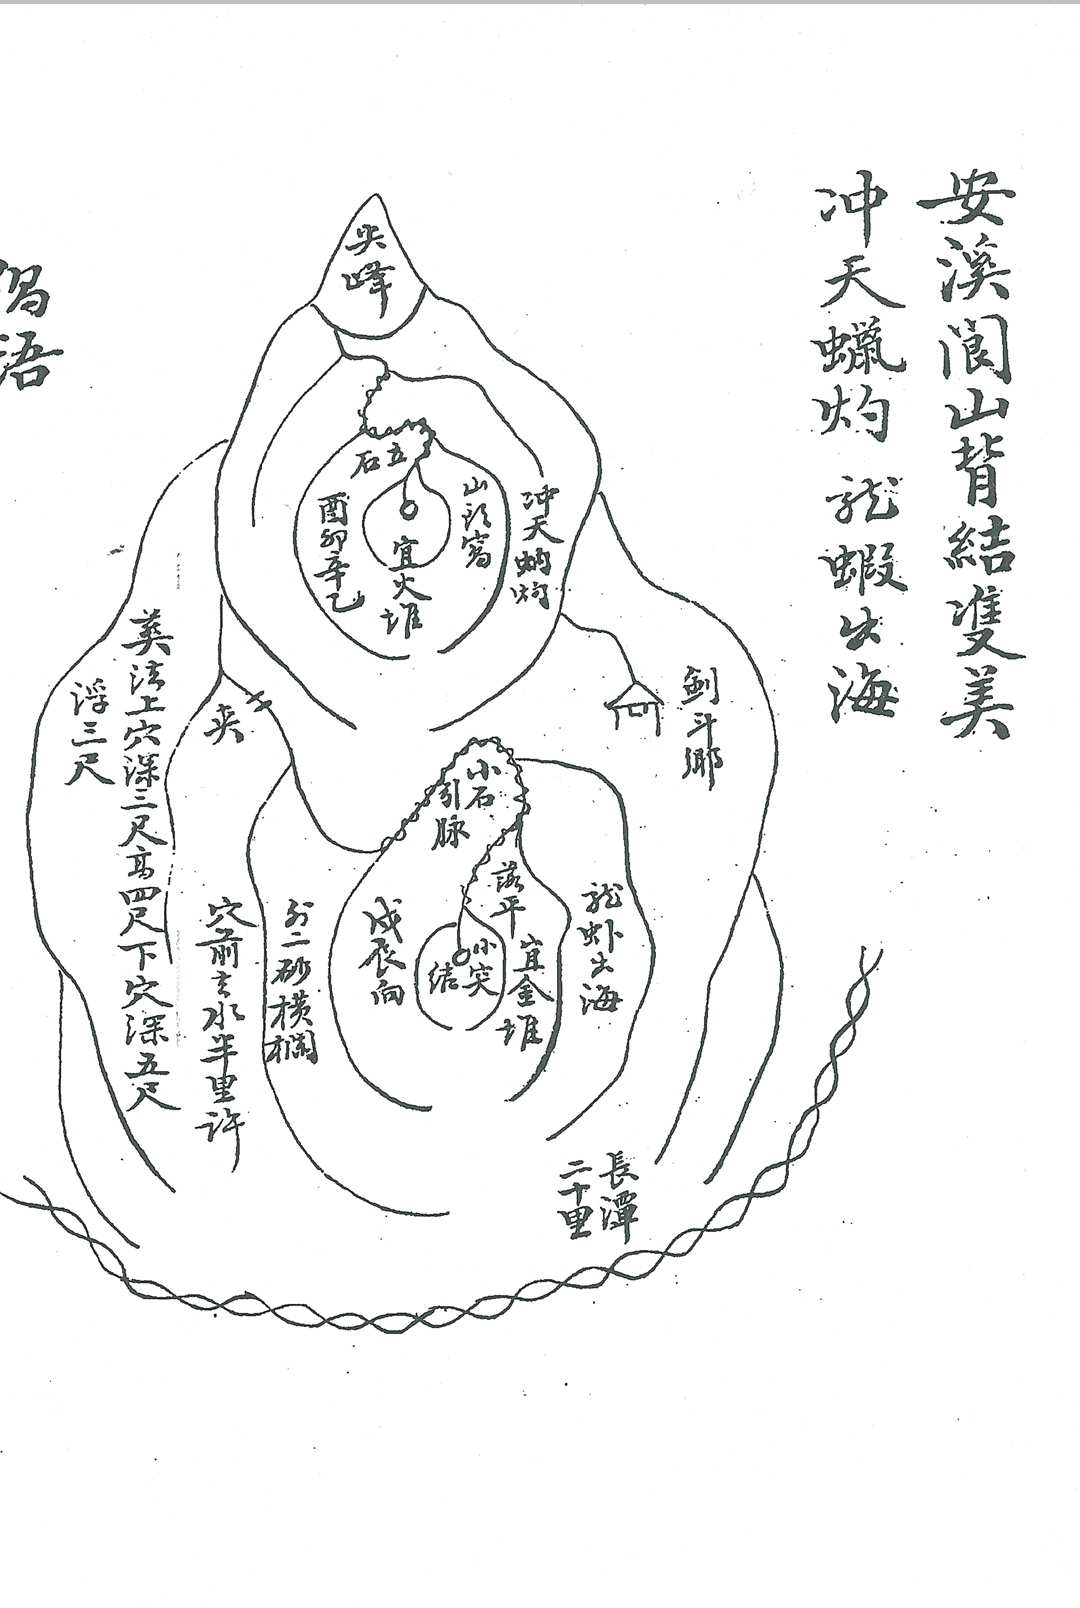 安溪閬山背結雙美
冲天蠟灼 龍蝦出海
尖峰
五石
山頂窩
冲天蚋灼
酉卯辛乙
宜火堆
劍斗鄉
夾
小石引脉
落平
龍虾出海
宜金堆
小突結
戍辰向
外二砂橫欄
穴前去水半里許
葬法上穴深三尺高四尺下穴深五尺
浮三尺
長潭二十里
偈語